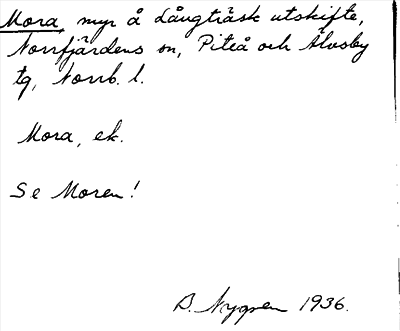 Mora, myr å Långträsk utskifte,
Norrfjärdens sn, Piteå och Älvsby
tg, Norrb. l.
Mora, ek.
Se Moren!
B. Nygren 1936.